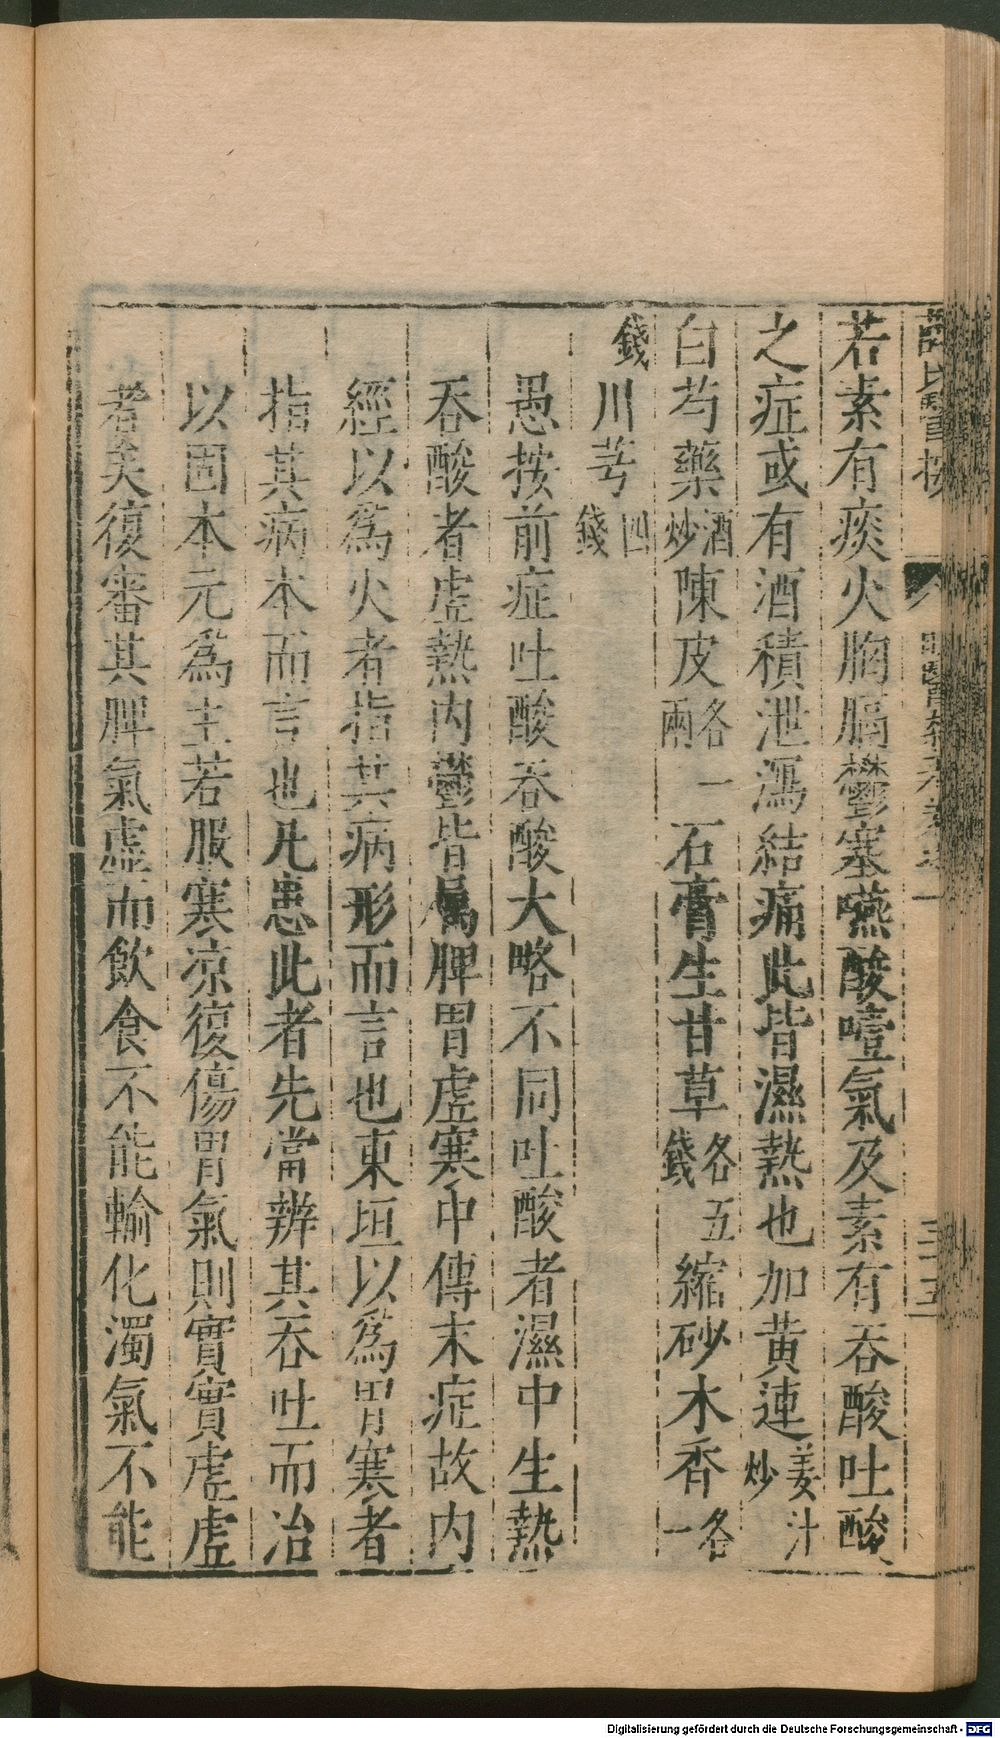 薛氏醫按
明醫雜著卷之一
三十五
若素有痰火胸膈鬱塞嚥酸噎氣及素有吞酸吐酸
之症或有酒積泄瀉結痛此皆濕熱也加黄連姜汁炒
白芍藥酒炒陳皮各一兩石膏生甘草各五錢縮砂木香各一
錢川芎四錢
愚按前症吐酸吞酸大略不同吐酸者濕中生熱
吞酸者虛熱內鬱皆屬脾胃虛寒中傳末症故內
經以為火者指其病形而言也東垣以為胃寒者
指其病本而言也凡患此者先當辨其吞吐而治
以固本元為主若服寒凉復傷胃氣則實實虛虛
者矣復審其脾氣虛而飲食不能輸化濁氣不能
Digitalisierung gefördert durch die Deutsche Forschungsgemeinschaft - DFG